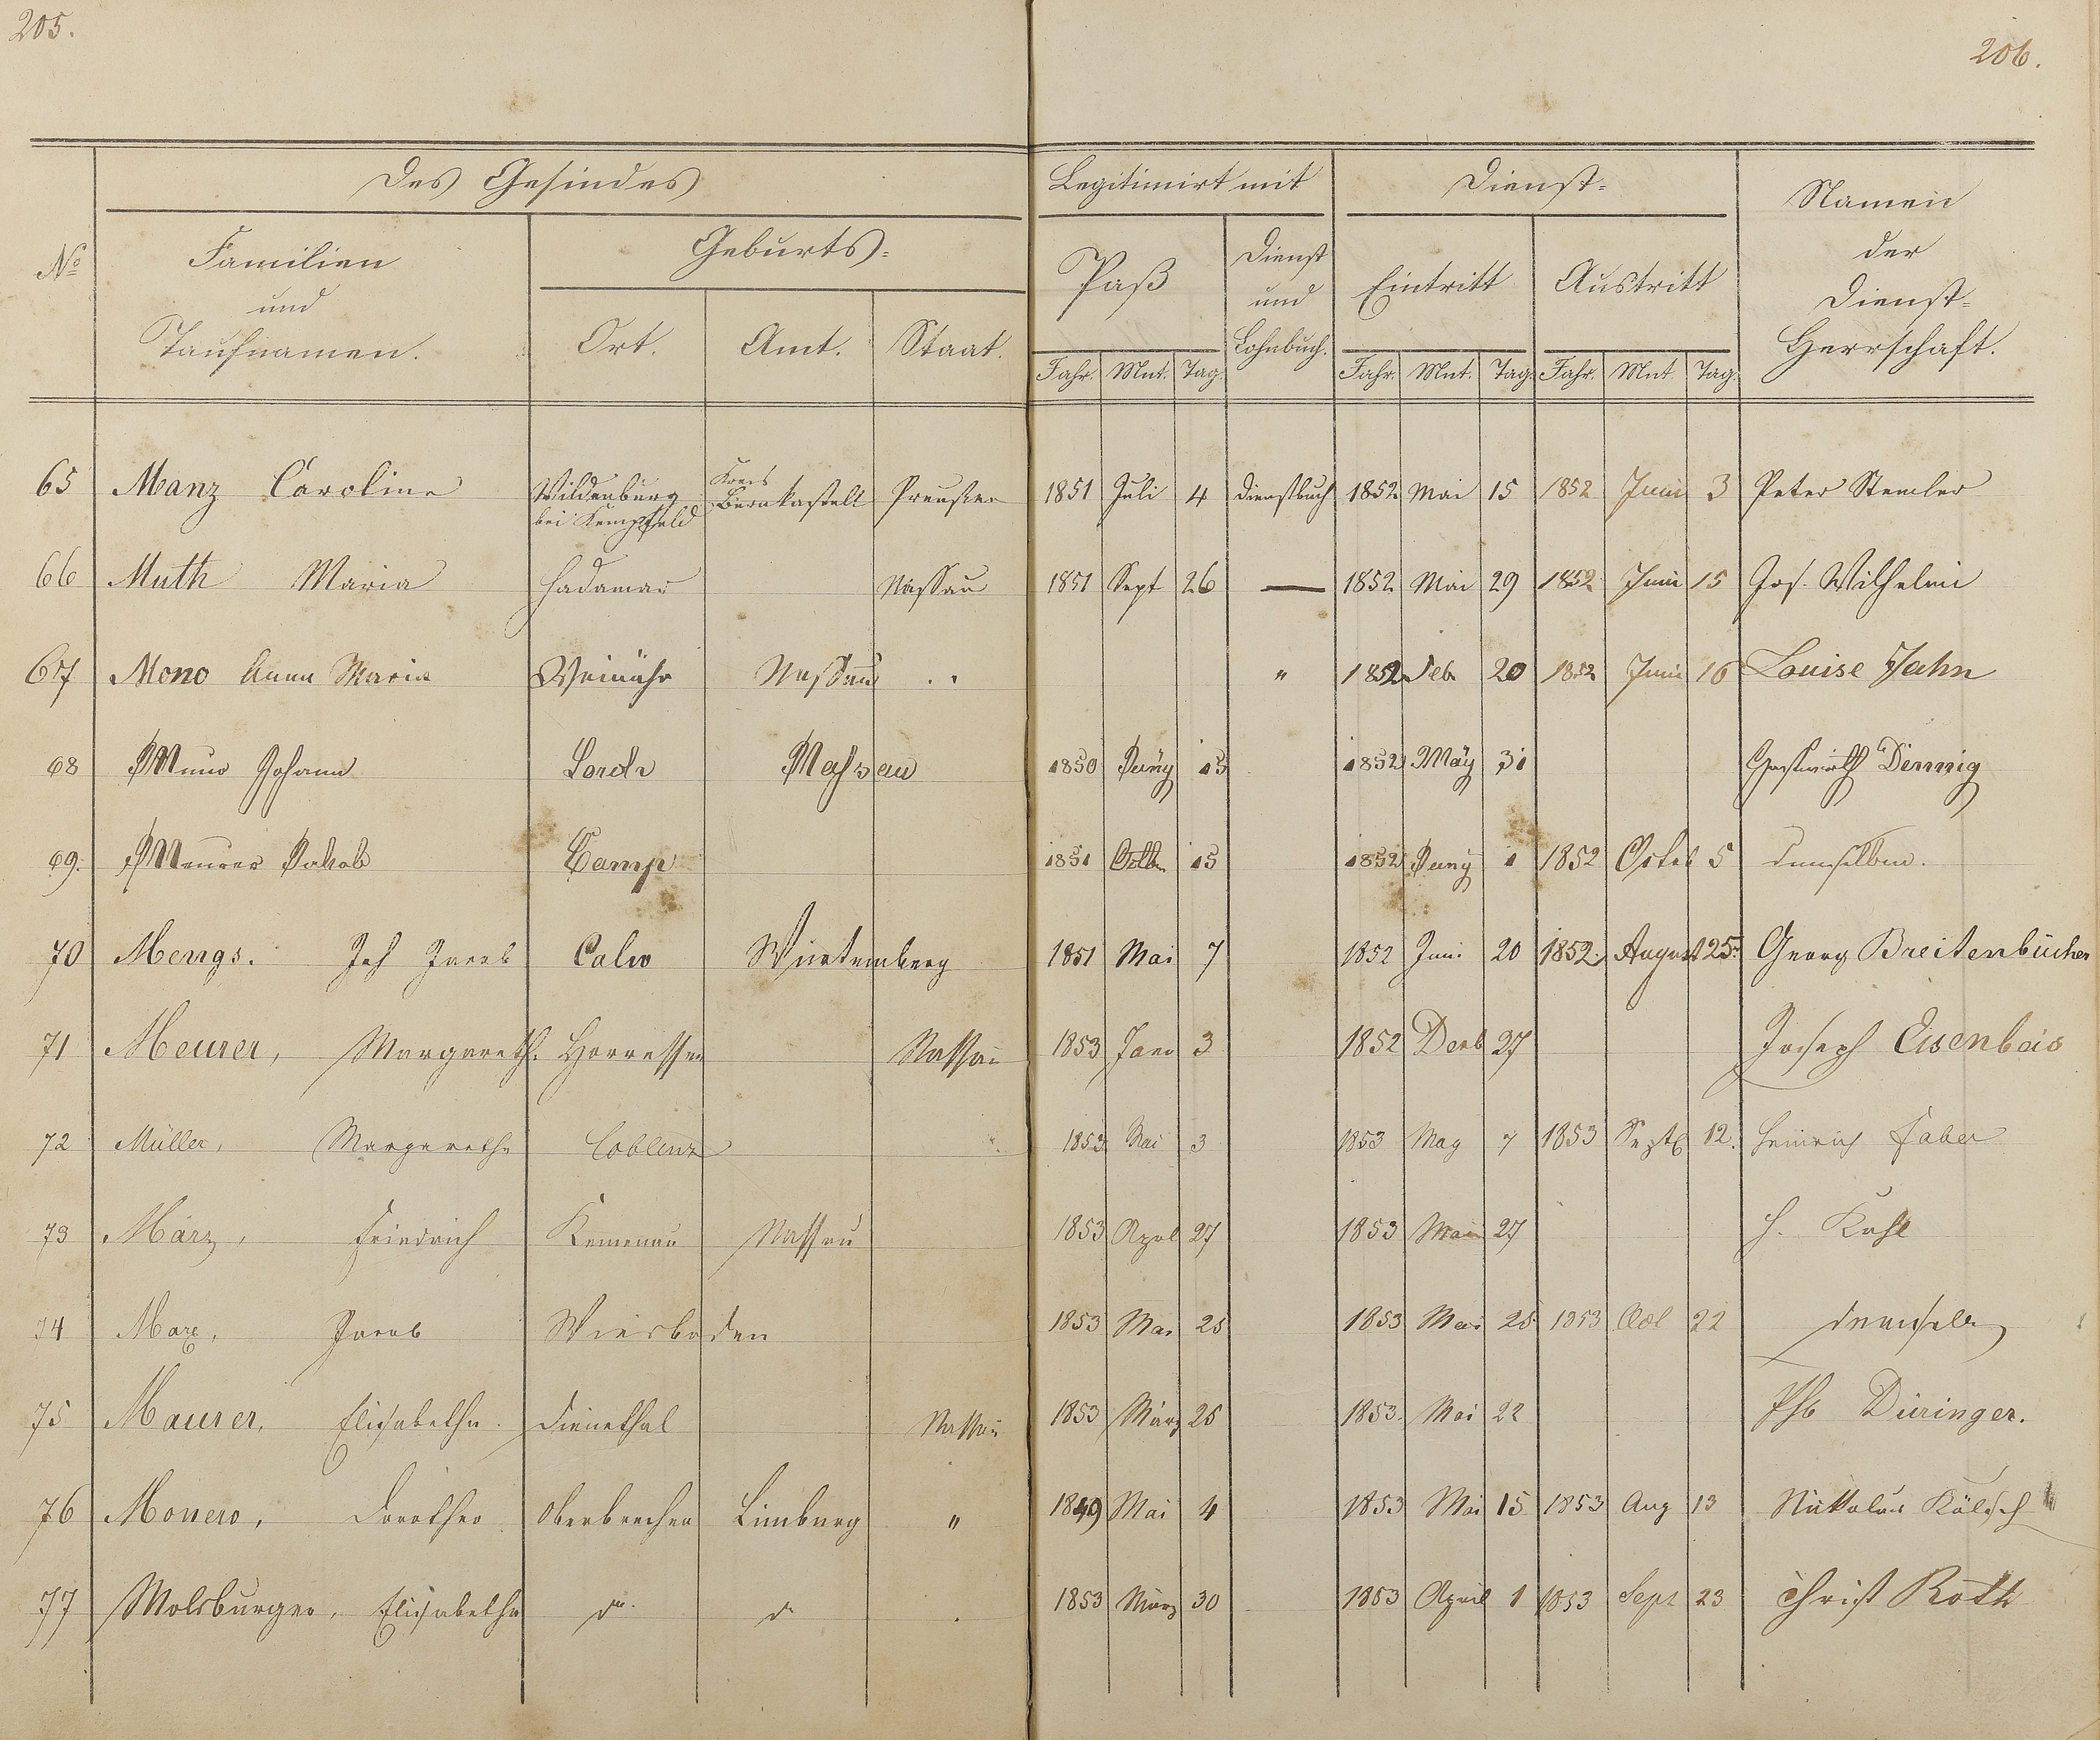 205.
206.
Des Gesindes
Legitimirt mit
Dienst-
Namen
der
Dienst-
Herrschaft.
No
Familien
und
Taufnamen.
Geburts-
Ort. Amt. Staat.
Paß
Dienst
und
Lohnbuch.
Eintritt
Austritt
Jahr. Mnt. Tag.
Jahr. Mnt. Tag. Jahr. Mnt. Tag.
65 Manz Caroline Wildenburg bei Kempfeld Kreis Bernkastell Preußen 1851 Juli 4 Dienstbuch 1852 Mai 15 1852 Juni 3 Peter Stemler
66 Muth Maria Hadamar Nassau 1851 Sept 26 — 1852 Mai 29 1852 Juni 15 Jos. Wilhelmi
67 Mono Anna Maria Weinähr Nassau " 1852 Feb 20 1852 Juni 16 Louise Jahn
68 Johann Lorch Nassau 1850 Juny 15 1852 May 31 Gastwirth Dennig
69. Meurer Jakob Camp 1851 15 1852 Juny 1 1852 Octob 5 demselben.
70 Mengs. Joh Jacob Calw Würtemberg 1851 Mai 7 1852 Juni 20 1852. August 25. Georg Breitenbücher
71 Meurer, Margareth. Horressen Nassau 1853 Janr 3 1852 Decb 27 Joseph Eisenbeis
72 Müller, Margarethe Coblenz 1853 Mai 3 1853 May 7 1853 Septb 12. Heinrich Faber
73 März, Friedrich Kemenau Nassau 1853 Aprl 27 1853 Mai 27 H. Kahl
74 Marx, Jacob Wiesbaden 1853 Mai 25 1853 Mai 25 1853 Oct 22 demselben
75 Maurer, Elisabetha. Dienethal Nassau 1853 März 25 1853. Mai 22 Phb Düringer.
76 Dorothea Oberbrechen Limburg " 1849 Mai 4 1853 Mai 15 1853 Aug 13 Nikolaus Kölsch
77 Molsburger, Elisabetha do do 1853 März 30 1853 April 1 1853 Sept 23 Christ Roth